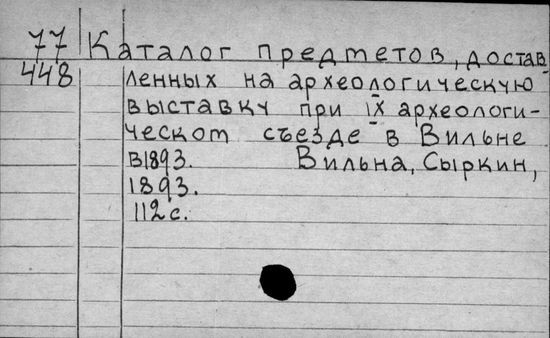 77 Каталог предметов, достав
448 ленных на археологическую
выставку при IX археологи-
ческом съезде в Вильне
в1893. Вильна, Сыркин,
1893.
112 с.